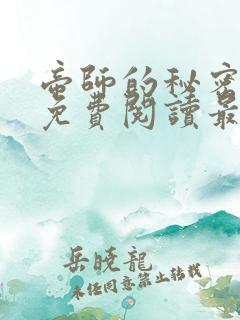 帝師的秘密
免費閱讀最
岳曉龍
未經同意禁止轉載